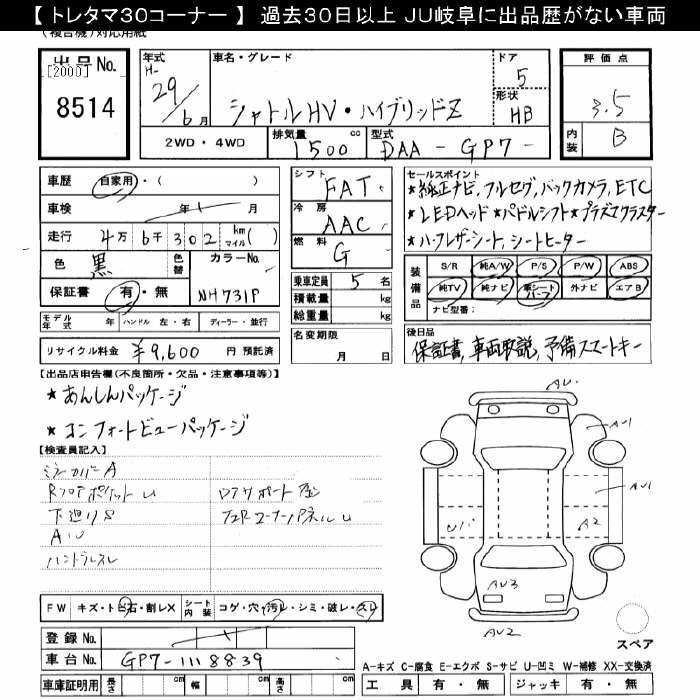 【 トレタマ30コーナー 】 過去30日以上 JU岐阜に出品歴がない車両
(複合機)対応用紙
出品No.
[2000]
8514
年式
H-
29/6月
車名・グレード
シャトルHV・ハイブリッドZ
ドア
5
形状
HB
評価点
3.5
内装
B
2WD・4WD
排気量
1500
cc
型式
DAA-GP7-
車歴
自家用・( )
車検
年 月
走行
4万6千302 km マイル( )
色
黒
色替
カラーNo.
NH731P
保証書
有・無
シフト
FAT
冷房
AAC
燃料
G
乗車定員 5名
積載量 kg
総重量 kg
セールスポイント
★純正ナビ,フルセグ,バックカメラ,ETC
★LEDヘッド★パドルシフト★プラズマクラスター
★ハーフレザーシート,シートヒーター
装備品
S/R 純A/W P/S P/W ABS
純TV 純ナビ 革シート ハーフ 外ナビ エアB
ナビ型番:
モデル年式 年 ハンドル 左・右 ディーラー・並行
リサイクル料金 ¥9,600 円 預託済
名変期限
月 日
後日品
保証書,車両取説,予備スマートキー
【出品店申告欄(不良箇所・欠品・注意事項等)】
★あんしんパッケージ
★コンフォートビューパッケージ
【検査員記入】
ミラーカバーA
下廻りS
AU
ハンドルスレ
AU
AU1
AU1
A2
U1
AU3
AU2
FW キズ・トビ石・割レX シート内装 コゲ・穴・汚レ・シミ・破レ・スレ
登録No.
車台No. GP7-1118839
車庫証明用 長さ cm 幅 cm 高さ cm
スペア
A-キズ C-腐食 E-エクボ S-サビ U-凹ミ W-補修 XX-交換済
工具 有・無 ジャッキ 有・無